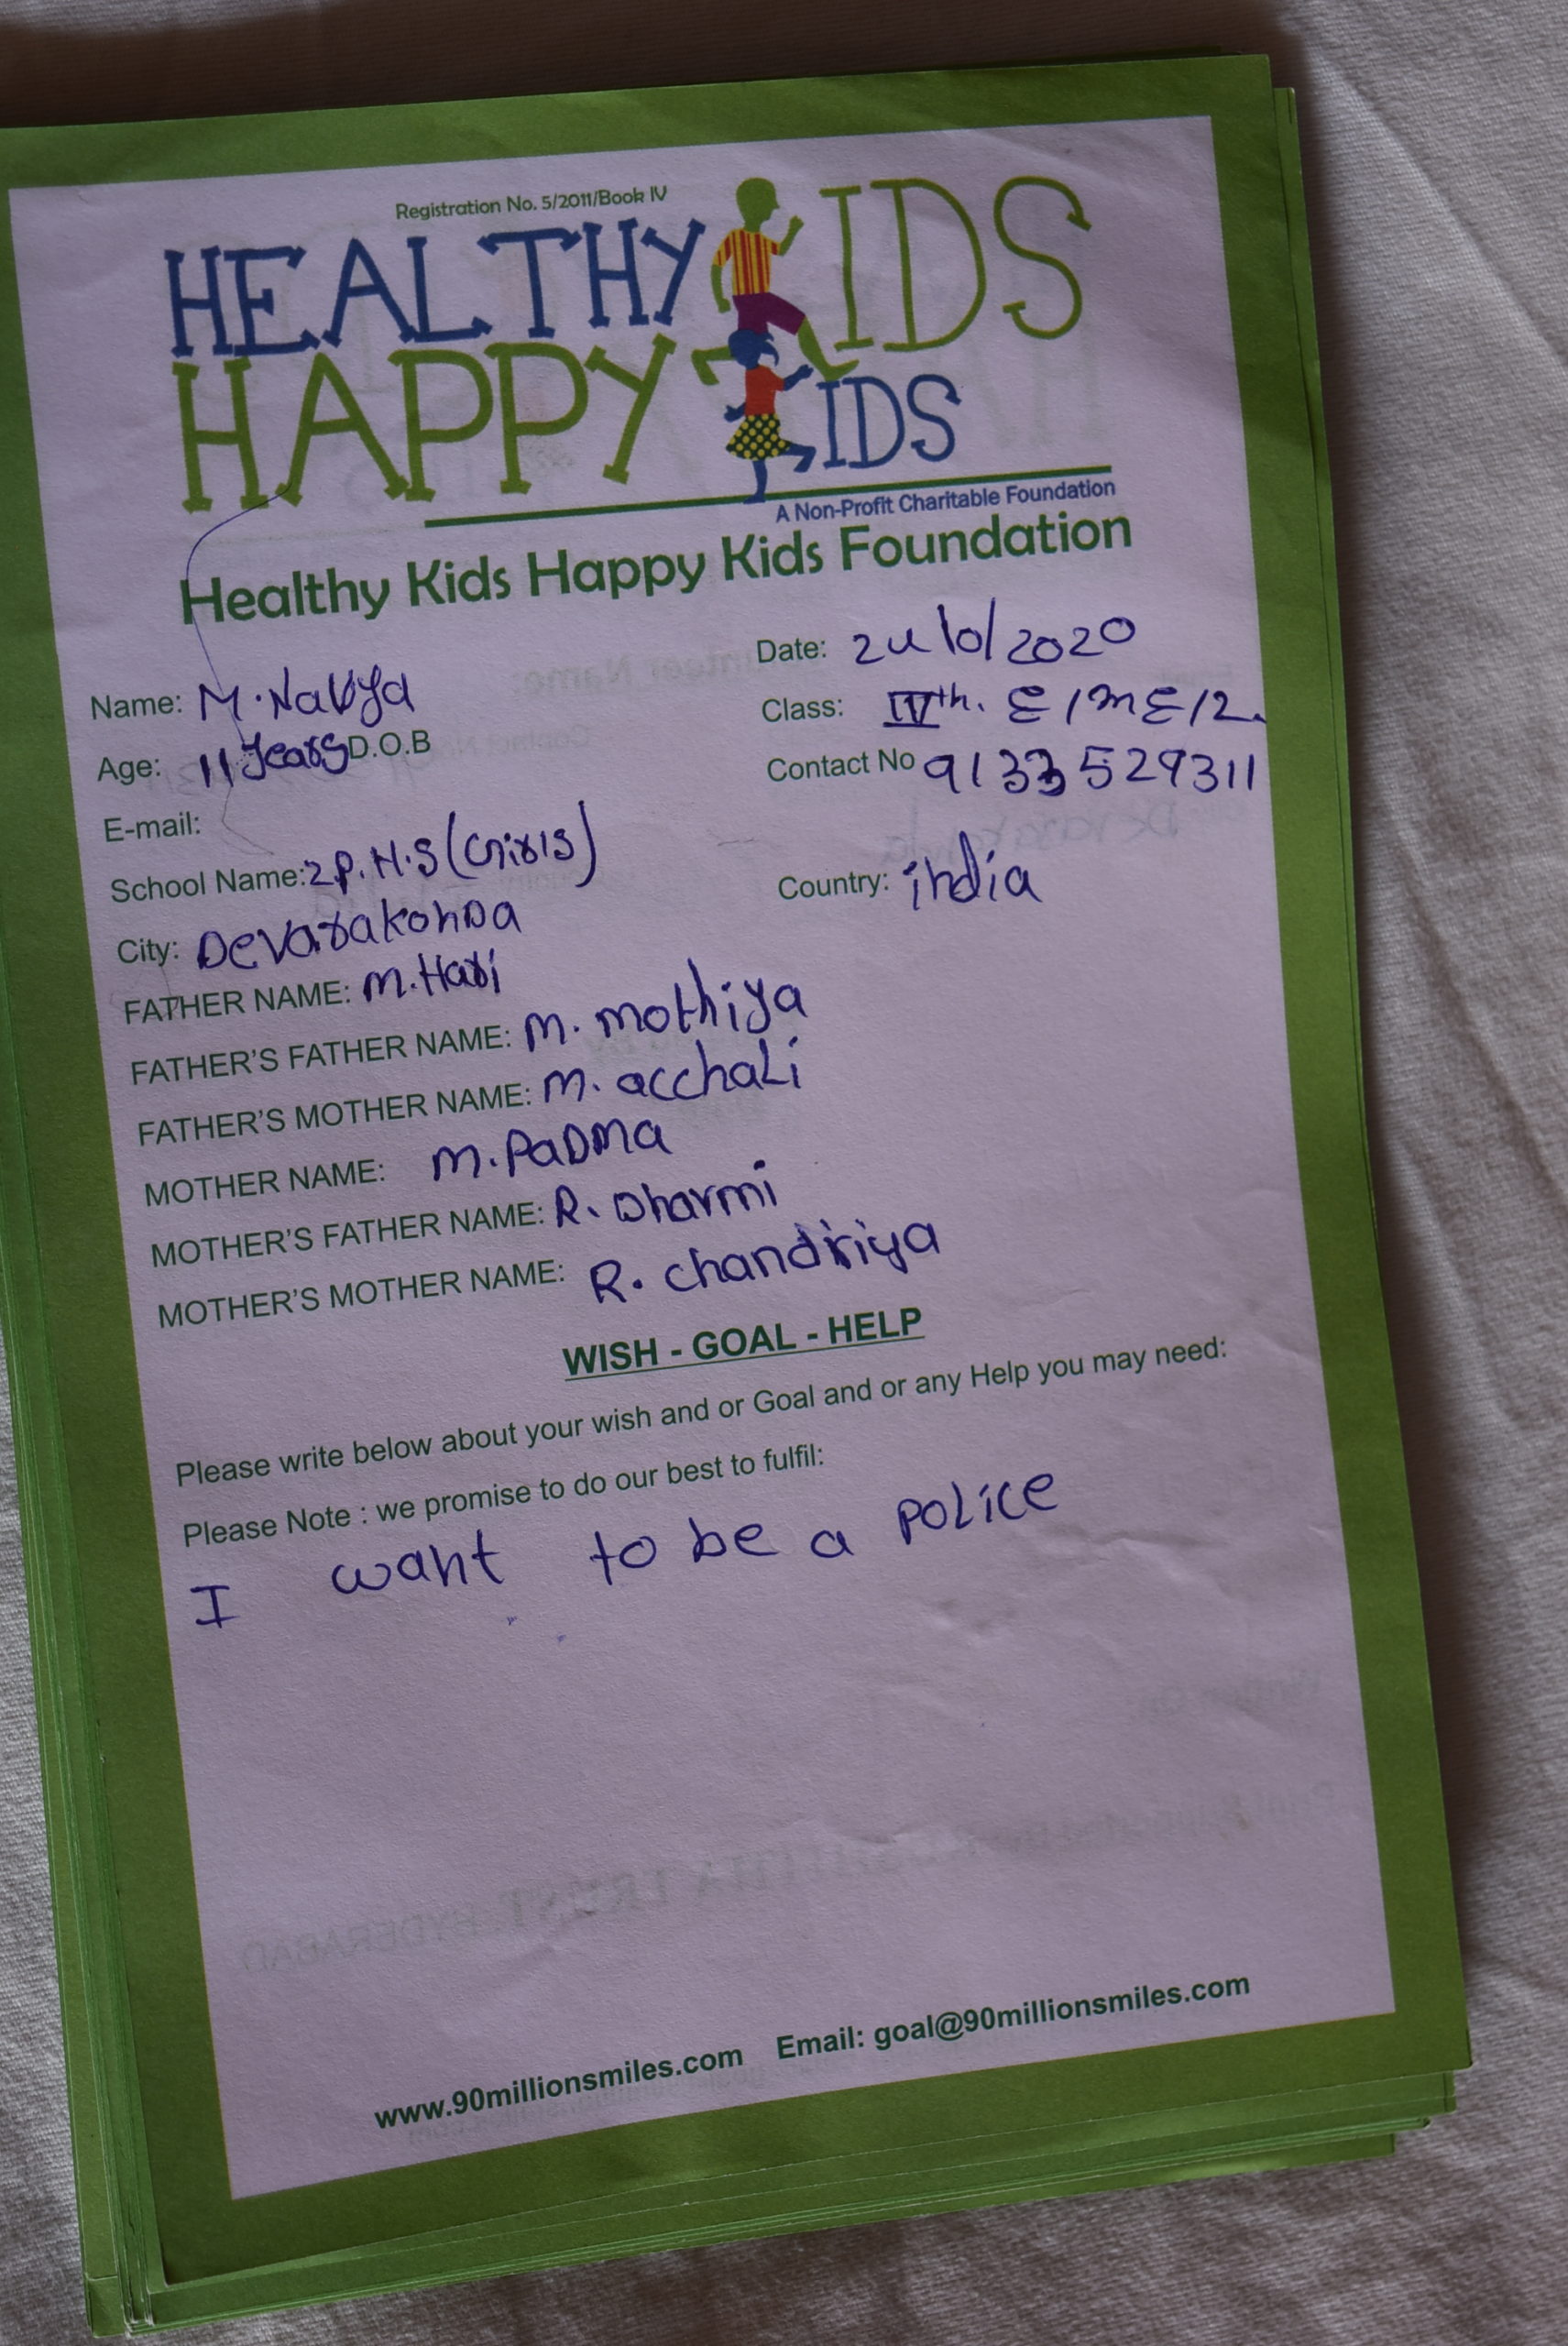 Registration No. 5/2011/Book IV
HEALTHY KIDS
HAPPY KIDS
A Non-Profit Charitable Foundation
Healthy Kids Happy Kids Foundation
Date: 24/10/2020
Name: M. Navya
Class: IVth.
Age: 11 Years D.O.B
Contact No 9133529311
E-mail:
School Name: Z.P.H.S (Girls)
City: Devarakonda
Country: india
FATHER NAME: M. Hari
FATHER'S FATHER NAME: M. mothiya
FATHER'S MOTHER NAME: M. acchali
MOTHER NAME: M. Padma
MOTHER'S FATHER NAME: R. Dharmi
MOTHER'S MOTHER NAME: R. chandriya
WISH - GOAL - HELP
Please write below about your wish and or Goal and or any Help you may need:
Please Note : we promise to do our best to fulfil:
I want to be a police
www.90millionsmiles.com Email: goal@90millionsmiles.com